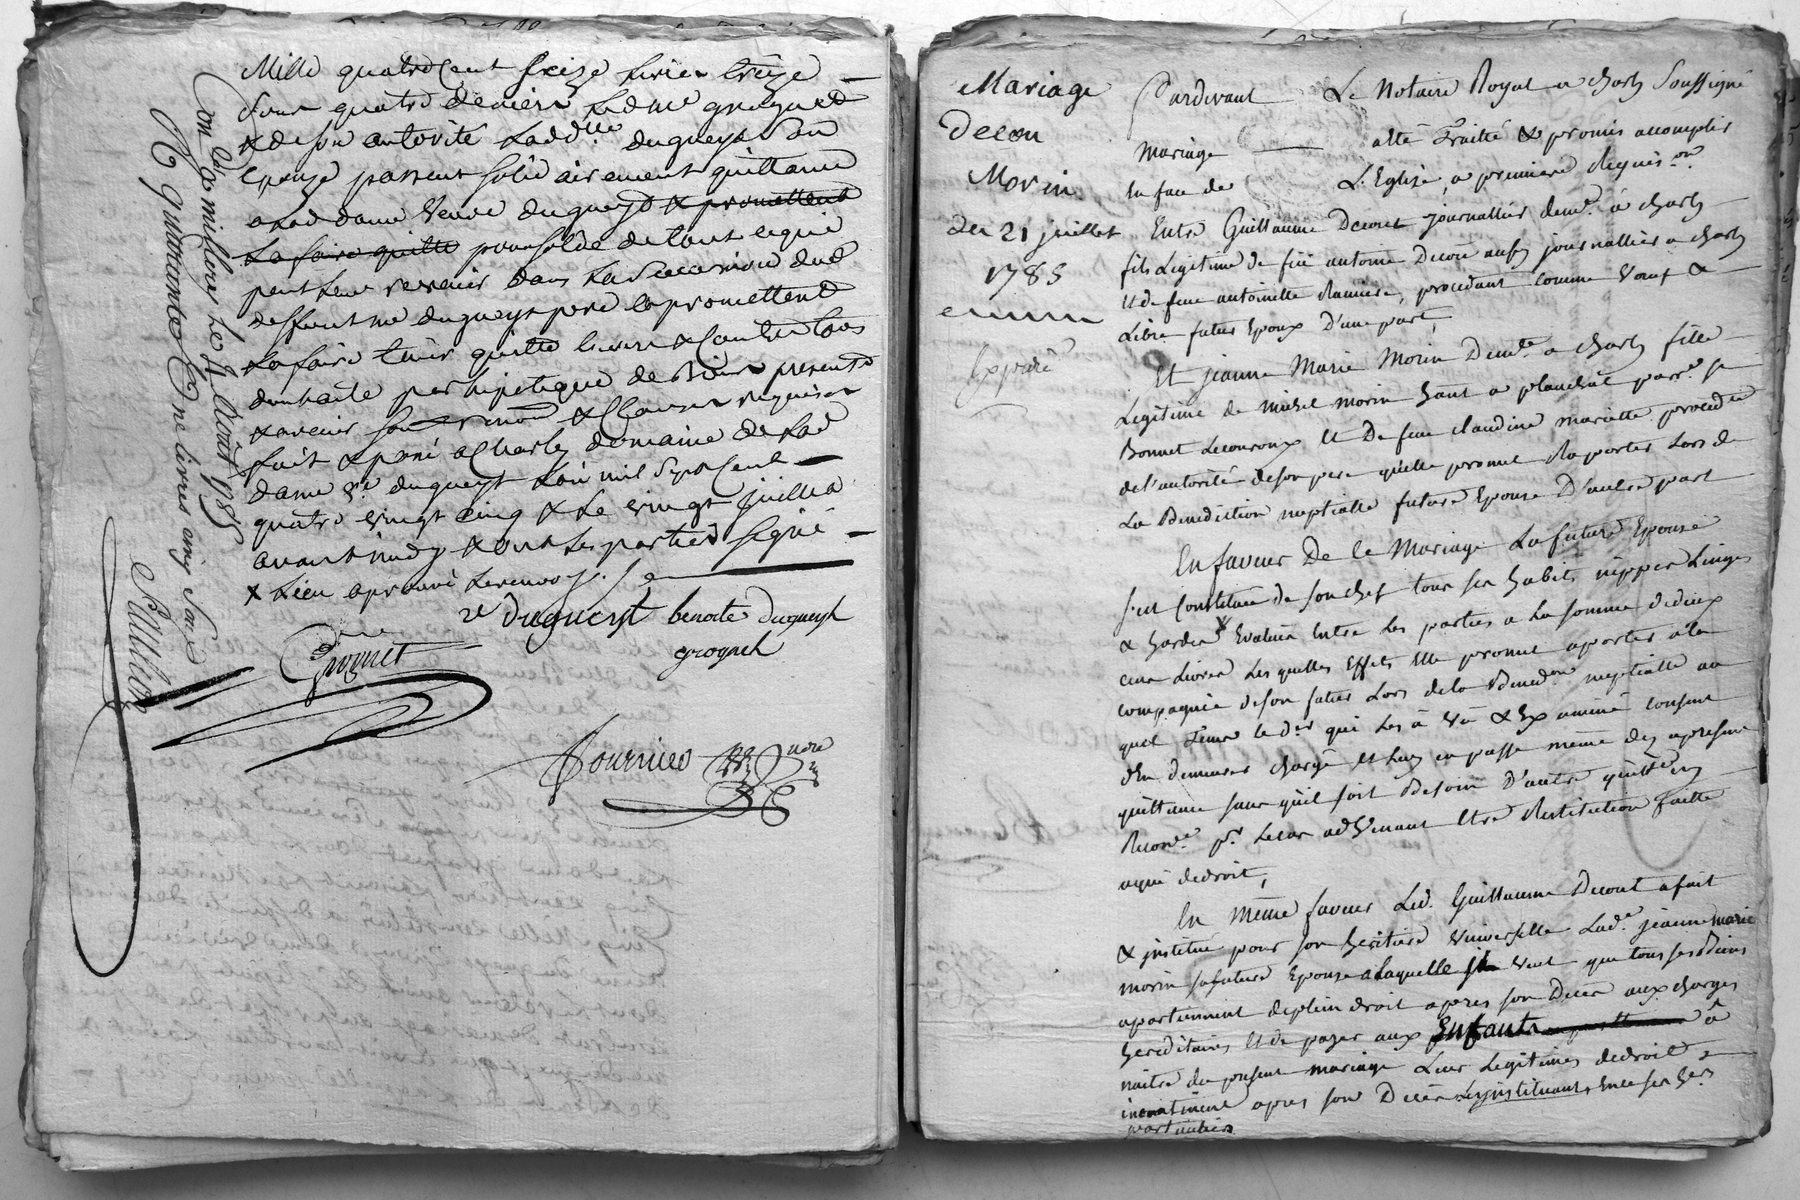 Mille quatre Cent seize livres treize
sous quatre deniers led me grognet
& de son autorité lad dlle dugueyt son
Epouze passent solidairement quittance
a lad dame veuve dugueyt & promettent
La faire quitte pour solde de tout ce qui
peut leur revenir dans la succession dud
deffunt me dugueyt pere et promettent
La faire tenir quitte envers & contre tous
par hipoteque de Biens presents
& avenir & Clauses requises
fait & passé a Charly domaine de lad
dame ve dugueyt L'an mil sept Cent
quatre vingt cinq & le vingt juillet
avant midy & ont les parties signé
& approuvé
ve Dugueyt benoite dugueyt
Grognet grognet
fournier nore
Con.lé a millery le 4 Août 1785
R quarante une livres cinq sous
Mariage
Decou
Morin
du 21 juillet
1785
Expdié
Pardevant Le Notaire Royal a charly soussigné
mariage a été Traitté & promis accomplir
en face de L'Eglise, a premiere Requision
Entre Guillaume Decout journallier demt. à charly
fils Legitime de feu antoine Decou aussy journallier a charly
et de feue antoinette Raniere, procedant comme veuf &
Libre futur Epoux D'une part,
Et jeanne Marie Morin Demte. a charly fille
Legitime de michel morin
Bonnet et De feue claudine mariette procedte
de l'autorité de son pere qu'elle promet Raporter Lors de
La Benediction nuptialle future Epouse D'autre part
En faveur De ce Mariage La future Epouse
s'est Constituée de son chef tous ses habits nippes Linges
& hardes Evalués entre les parties a la somme de deux
cens Livres Lesquelles Effets elle promet aporter à la
compagnie de son futur Lors de la Benedon nuptialle au
quel Tems le dt qui les à Vû & Examiné consent
d'en demeurer chargé et luy en passe même dez apresent
quittance sans qu'il soit Besoin D'autre quittce ny
Reconce. pr. Le cas advenant Etre Restitution faitte
a qui de droit,
En même faveur Led. Guillaume Decout a fait
& institué pour son heritiere Universelle Lade jeanne marie
morin sa future Epouse a laquelle il veut que tous ses Biens
apartiennent de plein droit apres son Decès aux charges
hereditaires et de payer aux Enfants à
naitre du present mariage Leur Legitimes de droit
incontinent apres son Decès Les instituants en ce ses hers
particuliers